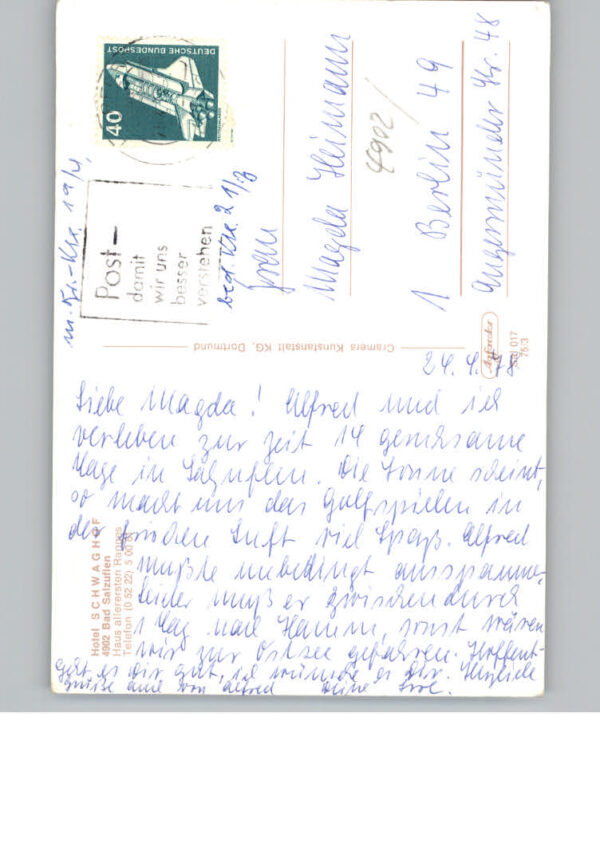 24. 4. 78
Liebe Magda! Alfred und ich
verleben zur Zeit 14 gemeinsame
Tage in Salzuflen. Die Sonne scheint,
so macht uns das Golfspielen in
der frischen Luft viel Spaß. Alfred
mußte unbedingt ausspannen,
leider muß er zwischendurch
1 Tag nach Hamm, sonst wären
wir zur Ostsee gefahren. Hoffent-
geht es Dir gut, ich wünsche es Dir. Herzliche
Grüße auch von Alfred Deine
Frau
Magda Heimann
4902/
1 Berlin 49
Angermünder Str. 48
DEUTSCHE BUNDESPOST
40
Post –
damit
wir uns
besser
verstehen
Cramers Kunstanstalt KG, Dortmund
017
75/3
Hotel SCHWAGHOF
4902 Bad Salzuflen
Haus allerersten Ranges
Telefon (0 52 22)